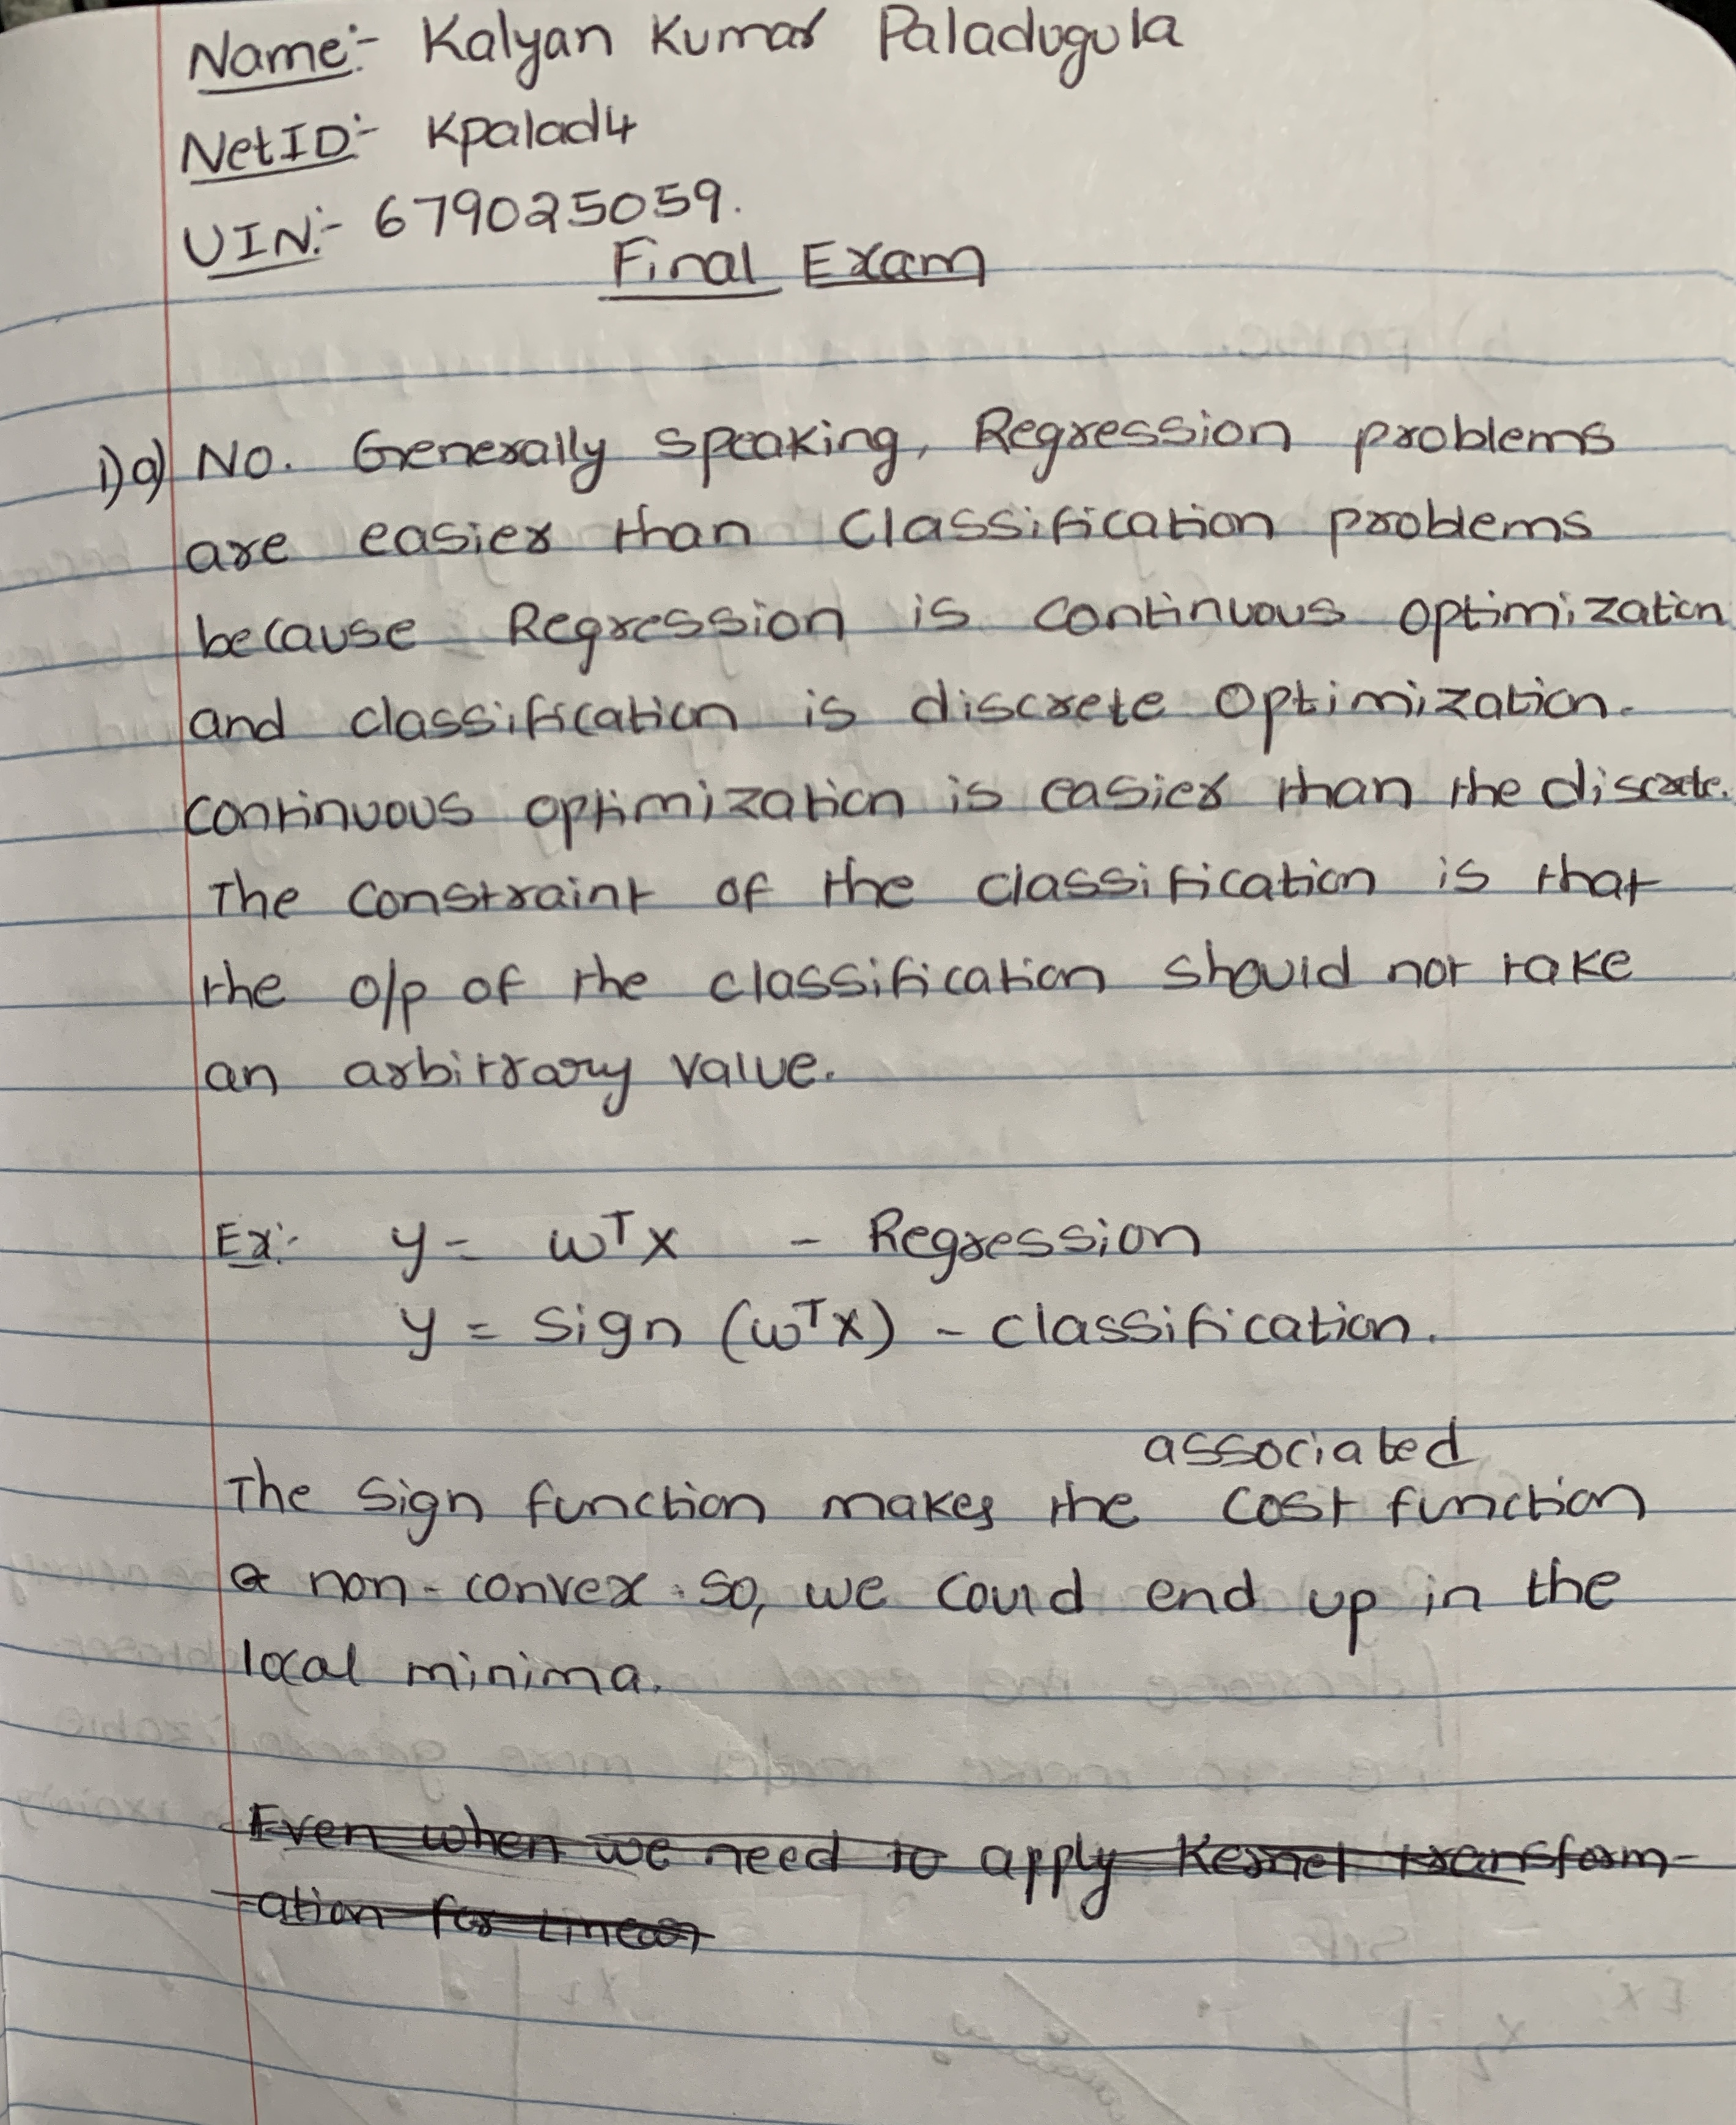 Name:- Kalyan Kumar Paladugula
NetID:- Kpalad4
UIN:- 679025059.
Final Exam
1)a) No. Generally speaking, Regression problems
are easier than Classification problems
because Regression is continuous optimization
and classification is discrete optimization.
continuous optimization is easier than the discrete.
The constraint of the classification is that
the o/p of the classification should not take
an arbitrary value.
Ex:- y = wᵀx - Regression
y = sign (wᵀx) - classification.
associated
The sign function makes the cost function
a non-convex. so, we could end up in the
local minima.
Even when we need to apply Kernel transform-
-ation for linear